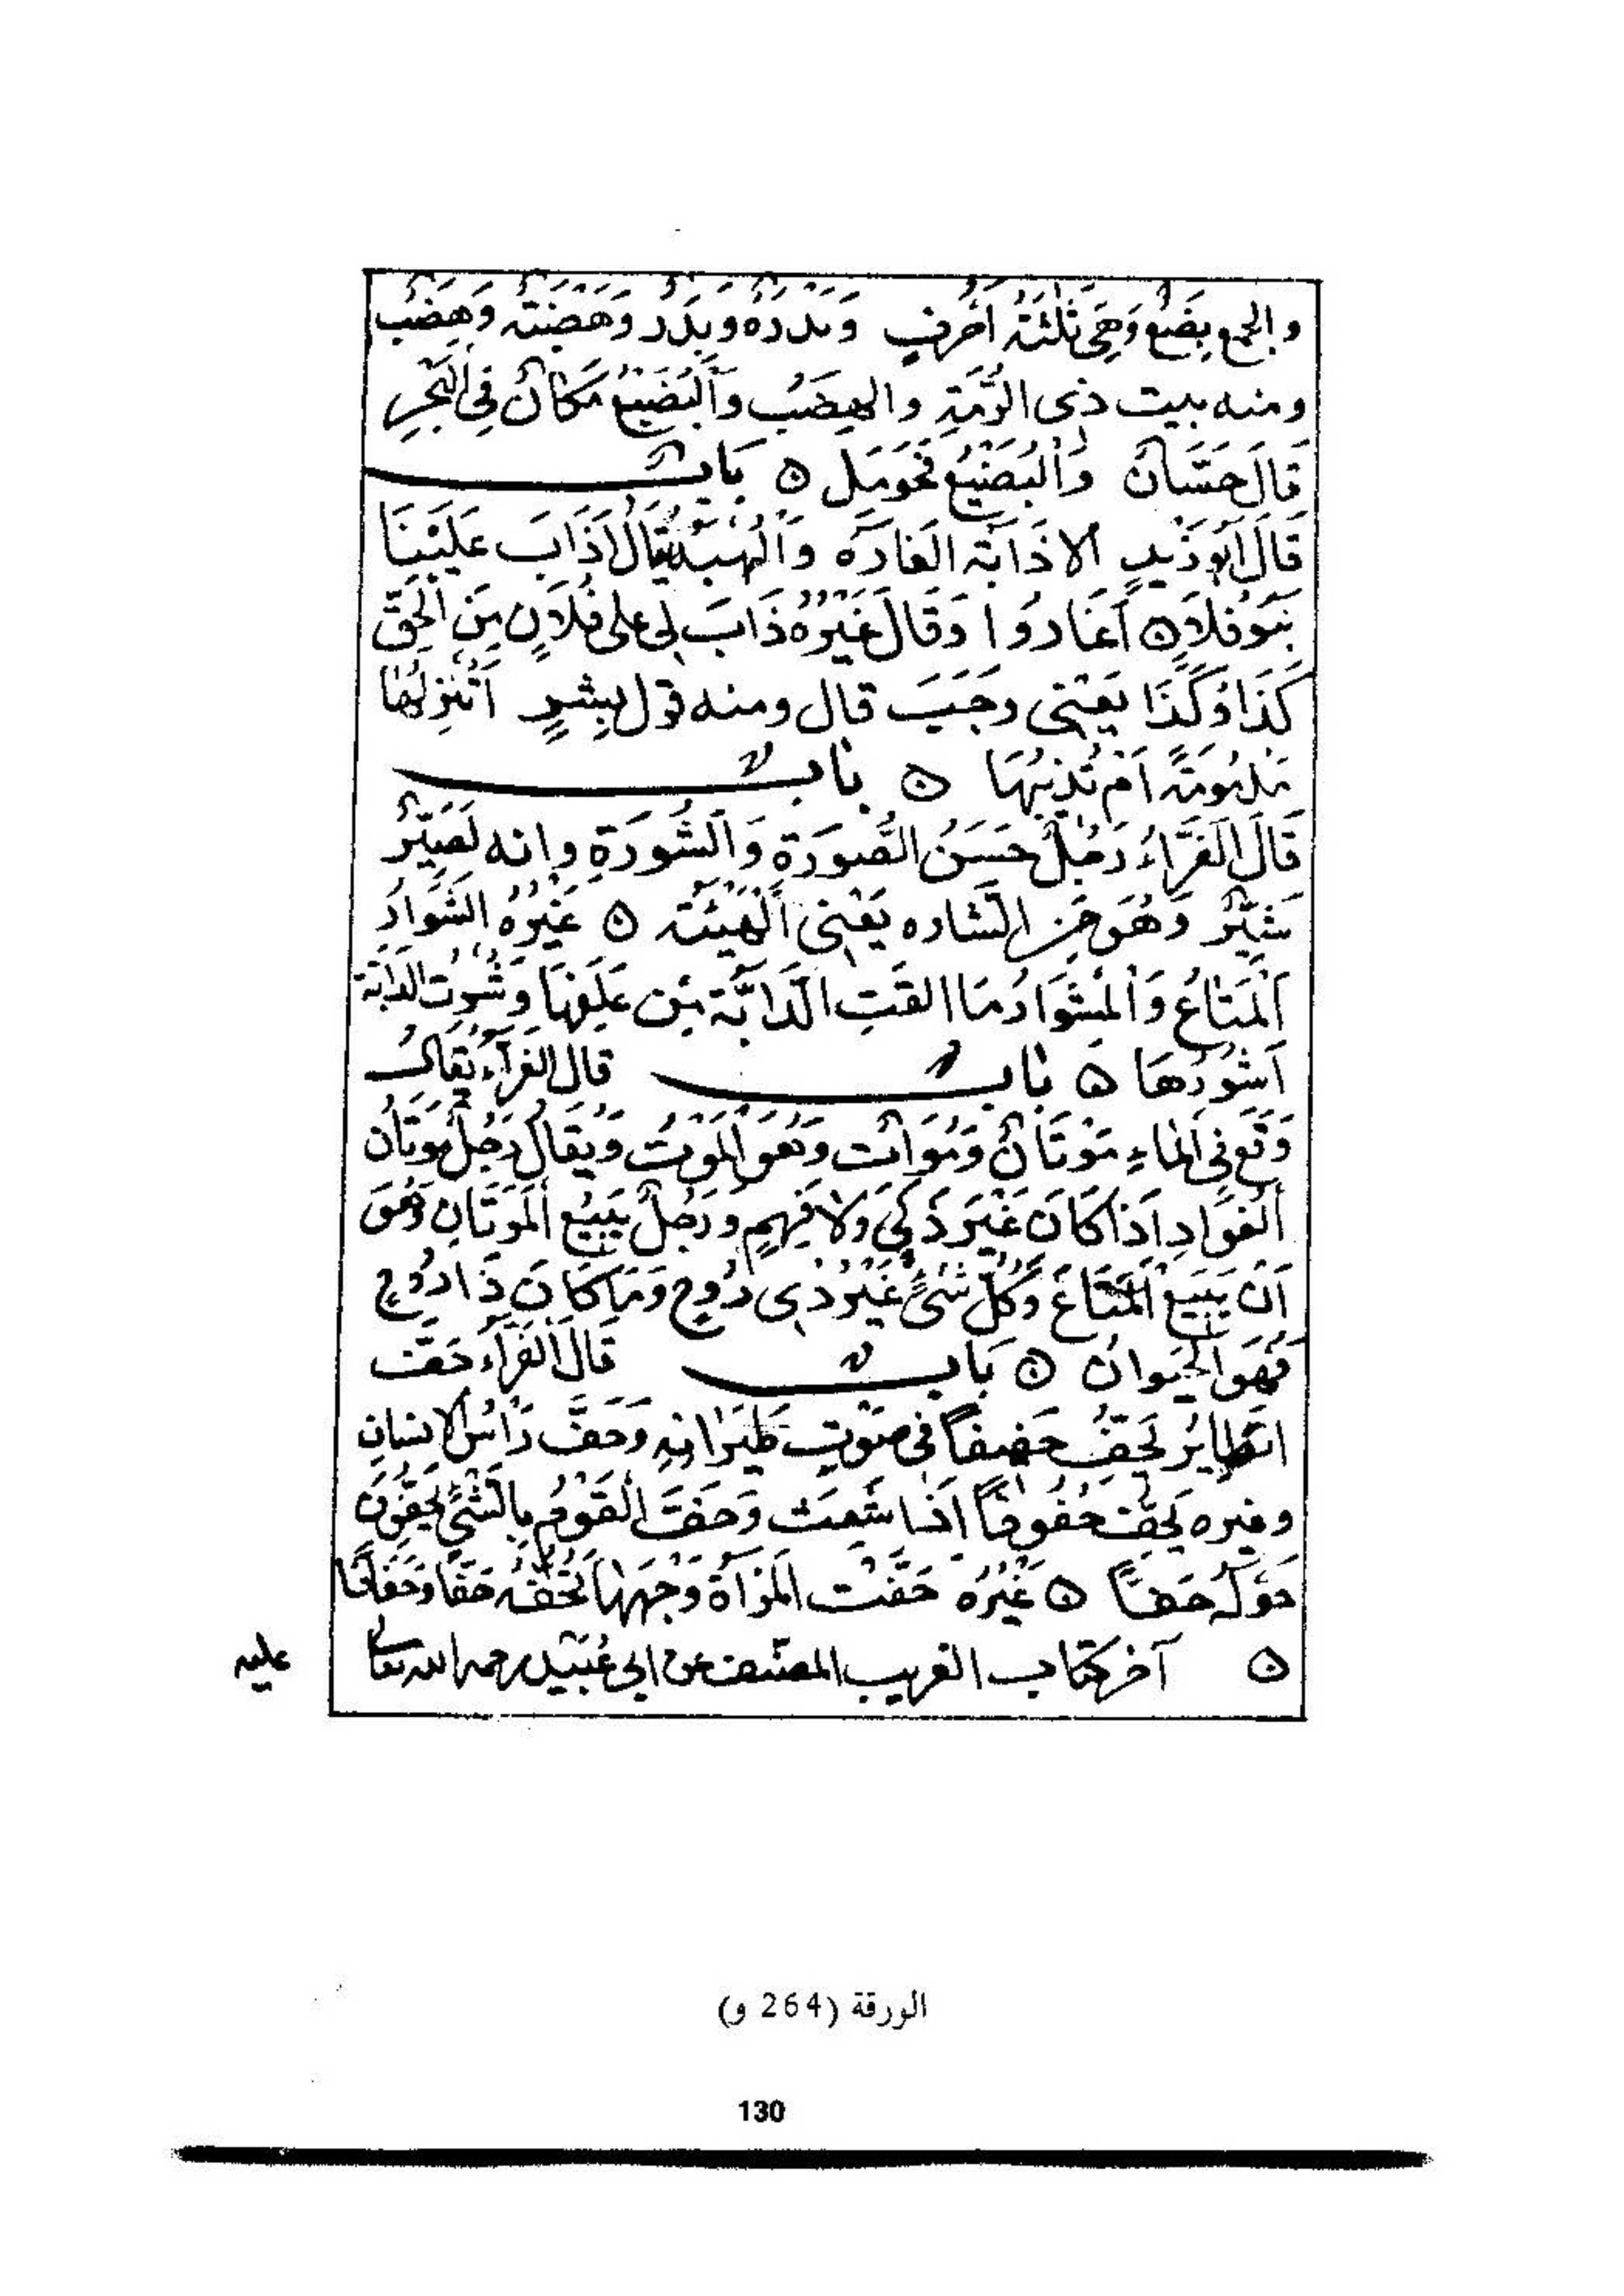 والجمع بِضَعٌ وَهِيَ ثَلٰثَةُ اَحْرُفٍ وَبَدْرَةٌ وبِدَرٌ وَهَضْبَةٌ وَهِضَبٌ
ومنه بيت ذى الرُّمَّةِ والهِضَبُ وَالْبُضَيْعُ مَكَانٌ فِى الْبَحْرِ
قَالَ حَسَّانُ وَالْبُضَيْعُ فَحَوْمَلِ ۞ بَابٌ
قَالَ اَبُو زَيْدٍ الاذَابَةُ الغَارَةُ وَالنُّهْبَةُ يُقَالُ اَذَابَ عَلَيْنَا
بَنُو فُلَانٍ اَغَارُوا وَقَالَ غَيْرُهُ ذَابَ لِى على فُلَانٍ مِنَ الْحَقِّ
كَذَا وَكَذَا يَعْنِى وَجَبَ قال ومنه قول بِشْرٍ اَتُنْزِلُهَا
مَذْمُومَةً اَمْ تُذِيبُهَا ۞ بابٌ
قَالَ الْفَرَّاءُ رَجُلٌ حَسَنُ الصُّورَةِ وَالشُّورَةِ وانه لَصَيِّرٌ
شَيِّرٌ وَهُوَ مِنَ الشاره يَعْنِى الْهَيْئَة ۞ غَيْرُهُ الشَّوَارُ
الْمَتَاعُ وَالْمِشْوَارُ مَا القَتِ الدَّابَّة مِن عَلَفِهَا وَشُرْتُ الدابَّة
اَشُورُهَا ۞ بَابٌ قال الفَرَّاءُ يُقَالُ
وَقَعَ فِى الْمَاءِ مَوْتَانٌ وَمُوَاتٌ وَهُوَ الْمَوْتُ وَيُقَالُ رَجُلٌ مَوْتَانُ
الْفُؤَادِ اِذَا كَانَ غَيْرَ ذَكِىٍّ وَلَا فَهِمٍ وَرَجُلٌ يَبِيْعُ الْمَوَتَانِ وَهُوَ
اَنْ يَبِيْعَ الْمَتَاعَ وَكُلَّ شَىْءٍ غَيْرَ ذِى رُوحٍ وَمَا كَانَ ذَا رُوحٍ
فَهُوَ الْحَيَوانُ ۞ بَابٌ قَالَ الْفَرَّاءُ حَفَّ
الطَّايِرُ يَحِفُّ حَفِيفاً فى صَوْتِ طَيَرَانِهِ وَحَفَّ رَأْسُ الانسَانِ
وغيره يَحِفُّ حُفُوفًا اِذَا شَعِثَ وَحَفَّ الْقَوْمُ بِالشَّىْءِ يَحُفُّونَ
حَوْلَهُ حَفًّا ۞ غَيْرُهُ حَفَّتِ الْمَرْاَةُ وَجْهَهَا تَحُفُّهُ حَفًّا وَحِفَافًا
۞ آخر كتاب الغريب المصنّف عن ابى عُبَيْد رحمه الله تعالى
عليه
الورقة (264 و)
130